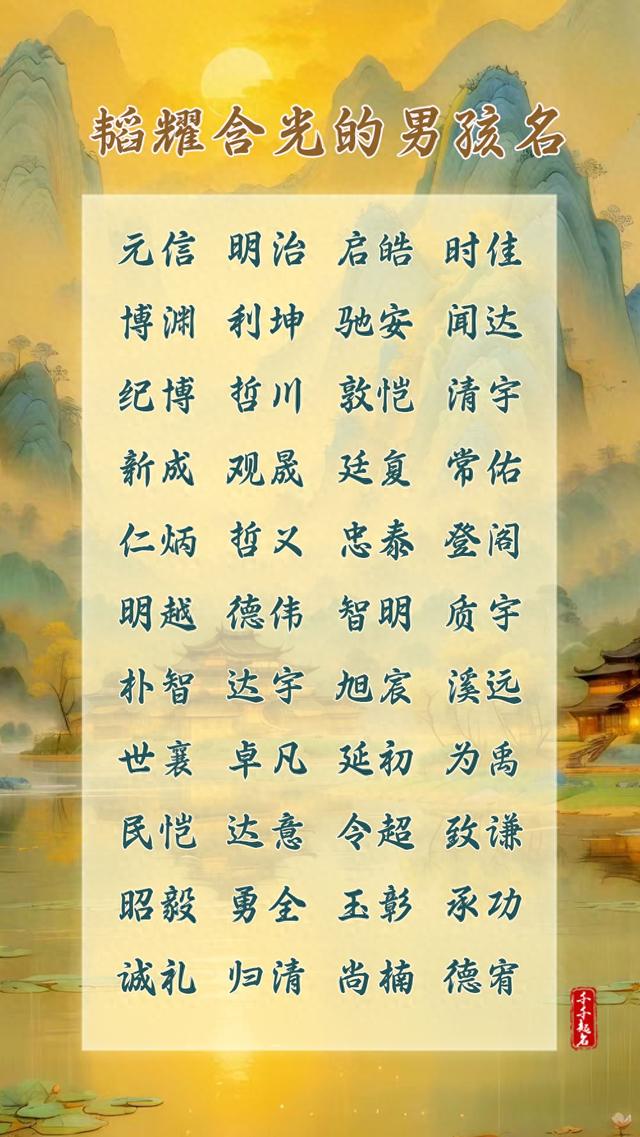 韬耀含光的男孩名
元信 明治 启皓 时佳
博渊 利坤 驰安 闻达
纪博 哲川 敦恺 清宇
新成 观晟 廷复 常佑
仁炳 哲义 忠泰 登阁
明越 德伟 智明 质宇
朴智 达宇 旭宸 溪远
世襄 卓凡 延初 为禹
民恺 达意 令超 致谦
昭毅 勇全 玉彰 承功
诚礼 归清 尚楠 德甯
千千起名